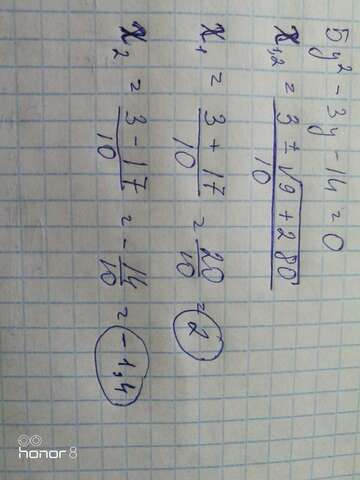 5y² - 3y - 14 = 0
x₁,₂ = (3 ± √(9 + 280)) / 10
x₁ = (3 + 17) / 10 = 20/10 = 2
x₂ = (3 - 17) / 10 = -14/10 = -1,4
honor 8